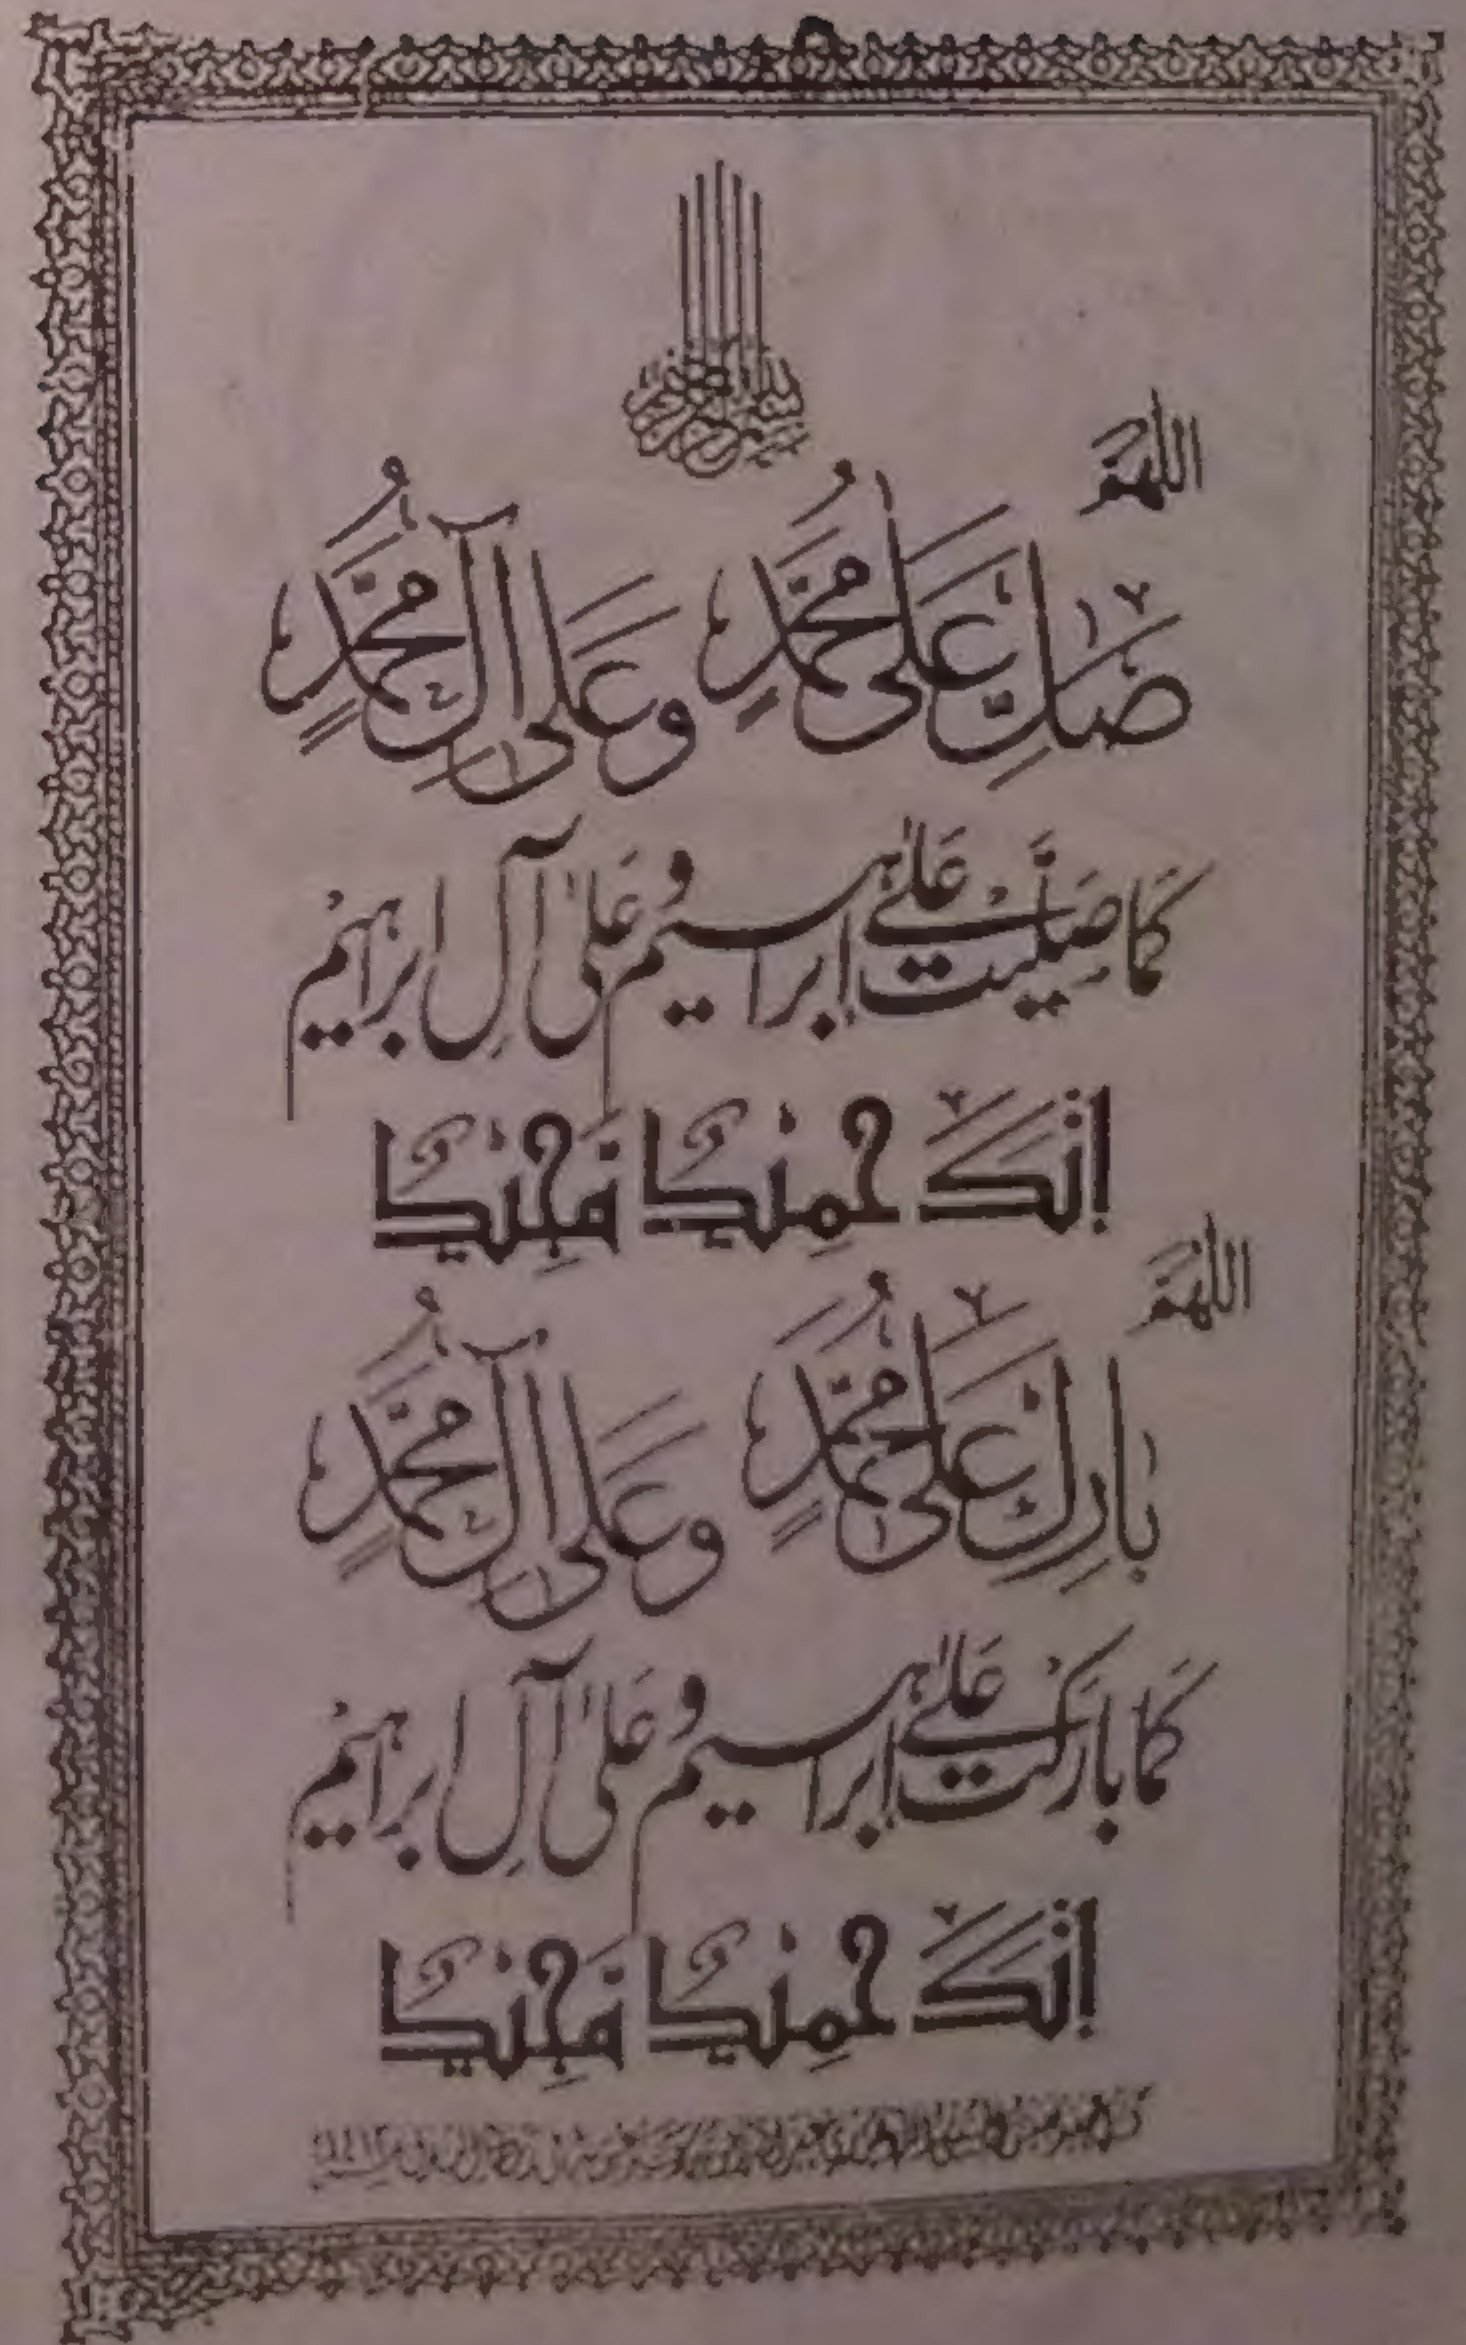 بسم الله الرحمن الرحيم
اللهم
صَلِّ عَلٰى مُحَمَّدٍ وَعَلٰى آلِ مُحَمَّدٍ
كَمَا صَلَّيْتَ عَلٰى اِبْرَاهِيْمَ وَعَلٰى آلِ اِبْرَاهِيْمَ
اِنَّكَ حَمِيْدٌ مَّجِيْدٌ
اللهم
بَارِكْ عَلٰى مُحَمَّدٍ وَعَلٰى آلِ مُحَمَّدٍ
كَمَا بَارَكْتَ عَلٰى اِبْرَاهِيْمَ وَعَلٰى آلِ اِبْرَاهِيْمَ
اِنَّكَ حَمِيْدٌ مَّجِيْدٌ